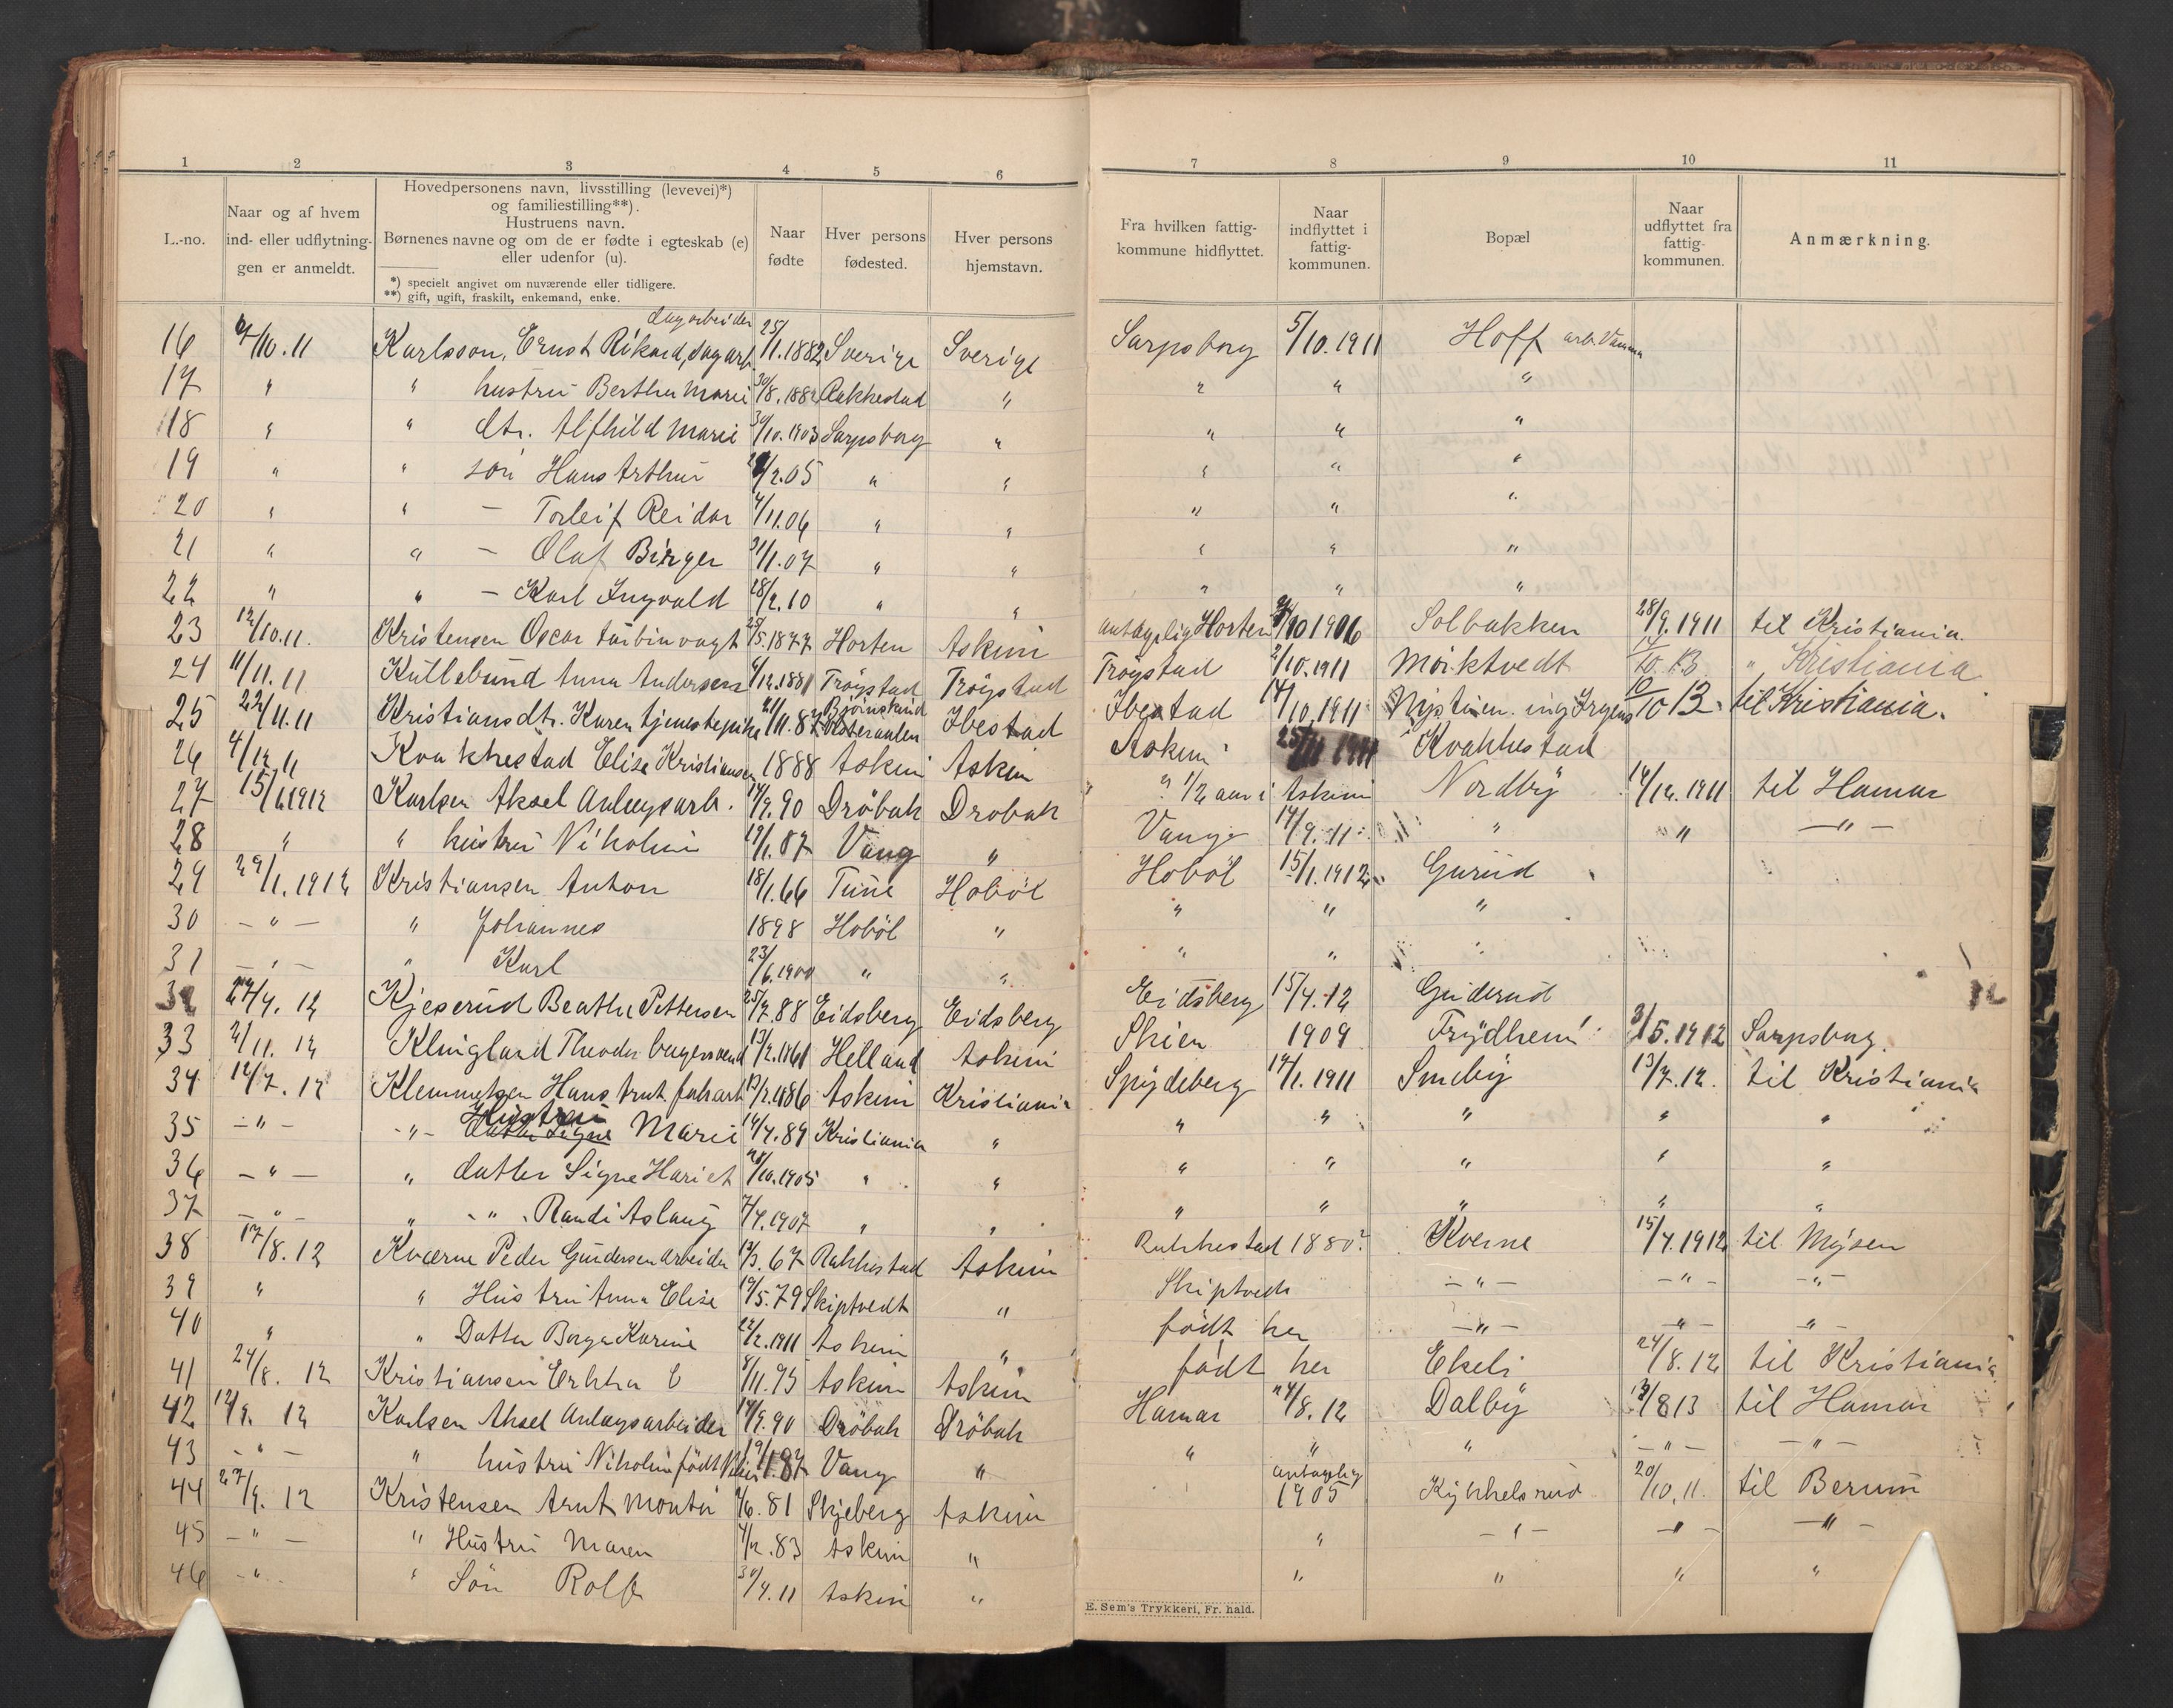 1 2 3 4 5 6 7 8 9 10 11
L.-no.
Naar og af hvem
ind- eller udflytnin-
gen er anmeldt.
Hovedpersonens navn, livsstilling (levevei)*)
og familiestilling**).
Hustruens navn.
Børnenes navne og om de er fødte i egteskab (e)
eller udenfor (u).
*) specielt angivet om nuværende eller tidligere.
**) gift, ugift, fraskilt, enkemand, enke.
Naar
fødte
Hver persons
fødested.
Hver persons
hjemstavn.
Fra hvilken fattig-
kommune hidflyttet.
Naar
indflyttet i
fattig-
kommunen.
Bopæl
Naar
udflyttet fra
fattig-
kommunen.
Anmærkning.
dagarbeider
16 /10.11 Karlsson, Ernst Rikard, dagarb. 25/11.1882 Sverige Sverige Sarpsborg 5/10.1911 Hoff arb. Vamma
17 " " hustru Bertha Marie 30/8.1882 Rakkestad " " " "
18 " " dtr. Alfhild Marie 30/10.1903 Sarpsborg " " " "
19 " " søn Hans Arthur /2.05 " " " " "
20 " " — Torleif Reidar 4/11.06 " " " " "
21 " " — Olaf Birger 31/1.07 " " " " "
22 " " — Karl Ingvald 28/2.10 " " " " "
23 12/10.11. Kristensen Oscar turbinvagt /5.1877 Horten Askim antagelig Horten /10 1906 Solbakken 28/9.1911 til Kristiania.
24 11/11.11 Kullebund Anna Andersen /12.1881 Trøgstad Trøgstad Trøgstad 2/10.1911 Moiktvedt /10.13 " Kristiania
Bjørnskind
25 22/11.11 Kristiansdtr. Karen tjenestepike 21/11.87 Vesteraalen Ibestad Ibestad 14/10.1911 Nystuen ing. Irgens 10/10 13. til Kristiania.
26 4/12.11 Kvakkestad Elise Kristiansen 1888 Askim Askim Askim 25/11 1911 Kvakkestad
27 15/1.1912 Karlsen Aksel Anlægsarb. 14/9.90 Drøbak Drøbak " 1/2 aar i Askim Nordby 14/12.1911 til Hamar
28 " " hustru Nikoline 19/1.87 Vang " Vang 14/9.11 " " — " —
29 29/1.1912 Kristiansen Anton 18/1.66 Tune Hobøl Hobøl 15/1.1912 Gurud
30 — " — " Johannes 1898 Hobøl " " " "
31 — " — " Karl 23/6.1900 " " " " "
32 27/4.12 Kjeserud Beathe Pettersen 25/7.88 Eidsberg Eidsberg Eidsberg 15/4.12 Guderud
33 2/11.12 Klingland Theodor bagersvend 13/2.1861 Helland Askim Skien 1909 Frydheim 3/5.1912 Sarpsborg.
34 12/7.12 Klemmetsen Hans Arnt fabrarb. 12/2.1886 Askim Kristiania Spydeberg 14/1.1911 Smeby 13/7.12. til Kristiania
Hustru
35 — " — — " — datter Signe Marie 14/4.89 Kristiania " " " " " "
36 — " — " datter Signe Hariet /10.1905 " " " " " " "
37 — " — " — " — Randi Aslaug 7/4.1907 " " " " " " "
38 17/8.12 Kværne Peder Gundersen arbeider 12/3.67 Rakkestad Askim Rakkestad 1880? Kverne 15/4.1912 til Mysen
39 " " Hustru Anna Elise 19/5.79 Skiptvedt " Skiptvedt — " — — " — — " —
40 " " Datter Borga Karine 22/2.1911 Askim " født her — " — — " — — " —
41 24/8.12 Kristiansen E 8/11.95 Askim Askim født her Ekeli 24/8.12 til Kristiania
42 12/9.12 Karlsen Aksel Anlægsarbeider 14/9.90 Drøbak Drøbak Hamar 24/8.12 Dalby /8 13 til Hamar
43 — " — " hustru Nikoline født 19/1 87 Vang " " " " — " — — " —
44 27/9.12 Kristensen Arnt Montør /6.81 Skjeberg Askim antagelig 1905 Kykkelsrud 20/10.11. til Berum
45 — " — " Hustru Maren 4/12.83 Askim " " — " — — " — — " —
46 — " — " Søn Rolf 30/4.11 Askim " " " " "
E. Sem's Trykkeri, Fr. hald.